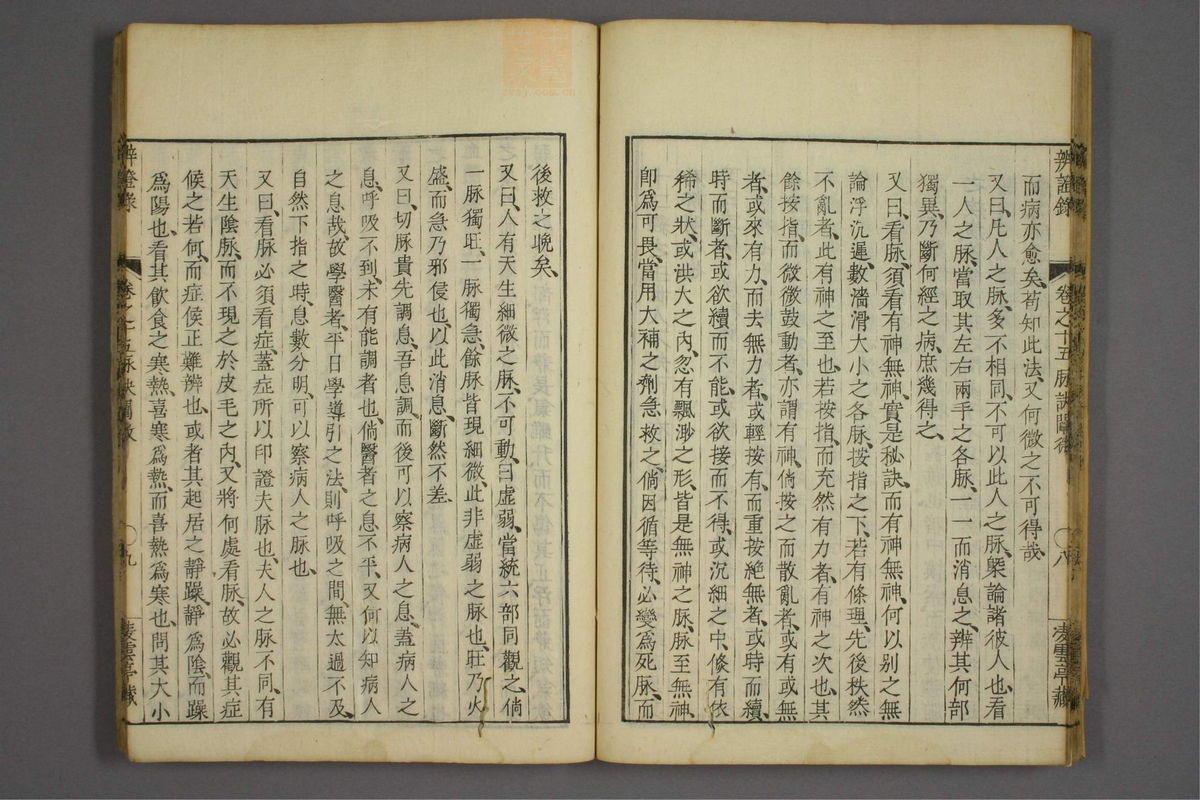 而病亦愈矣、茍知此法、又何微之不可得哉
又曰、凡人之脉、多不相同、不可以此人之脉、槩論諸彼人也、看
一人之脉、當取其左右兩手之各脉、一一而消息之、辨其何部
獨異、乃斷何經之病、庶幾得之、
又曰、看脉、須看有神無神、實是秘訣、而有神無神、何以别之、無
論浮沉遲數濇滑大小之各脉、按指之下、若有條理、先後秩然
不亂者、此有神之至也、若按指、而充然有力者、有神之次也、其
餘按指、而微微鼓動者、亦謂有神、倘按之而散亂者、或有或無
者、或來有力、而去無力者、或輕按有、而重按絶無者、或時而續
時而斷者、或欲續而不能、或欲接而不得、或沉細之中、倐有依
稀之狀、或洪大之內、忽有飄渺之形、皆是無神之脉、脉至無神、
卽爲可畏、當用大補之劑急救之、倘因循等待、必變爲死脉、而
辨證錄
卷之十五 脉訣闡微
八
凌雲亭藏
後救之晚矣、
又曰、人有天生細微之脉、不可動曰虛弱、當統六部同觀之、倘
一脉獨旺、一脉獨急、餘脉皆現細微、此非虛弱之脉也、旺乃火
盛、而急乃邪侵也、以此消息、斷然不差
又曰、切脉貴先調息、吾息調、而後可以察病人之息、蓋病人之
息、呼吸不到、未有能調者也、倘醫者之息不平、又何以知病人
之息哉、故學醫者、平日學導引之法、則呼吸之間、無太過不及、
自然下指之時、息數分明、可以察病人之脉也、
又曰、看脉必須看症、蓋症所以印證夫脉也、夫人之脉不同、有
天生陰脉、而不現之於皮毛之內、又將何處看脉、故必觀其症
候之若何、而症候正難辨也、或者其起居之靜躁、靜爲陰、而躁
爲陽也、看其飲食之寒熱、喜寒爲熱、而喜熱爲寒也、問其大小
辨證錄
九
凌雲亭藏